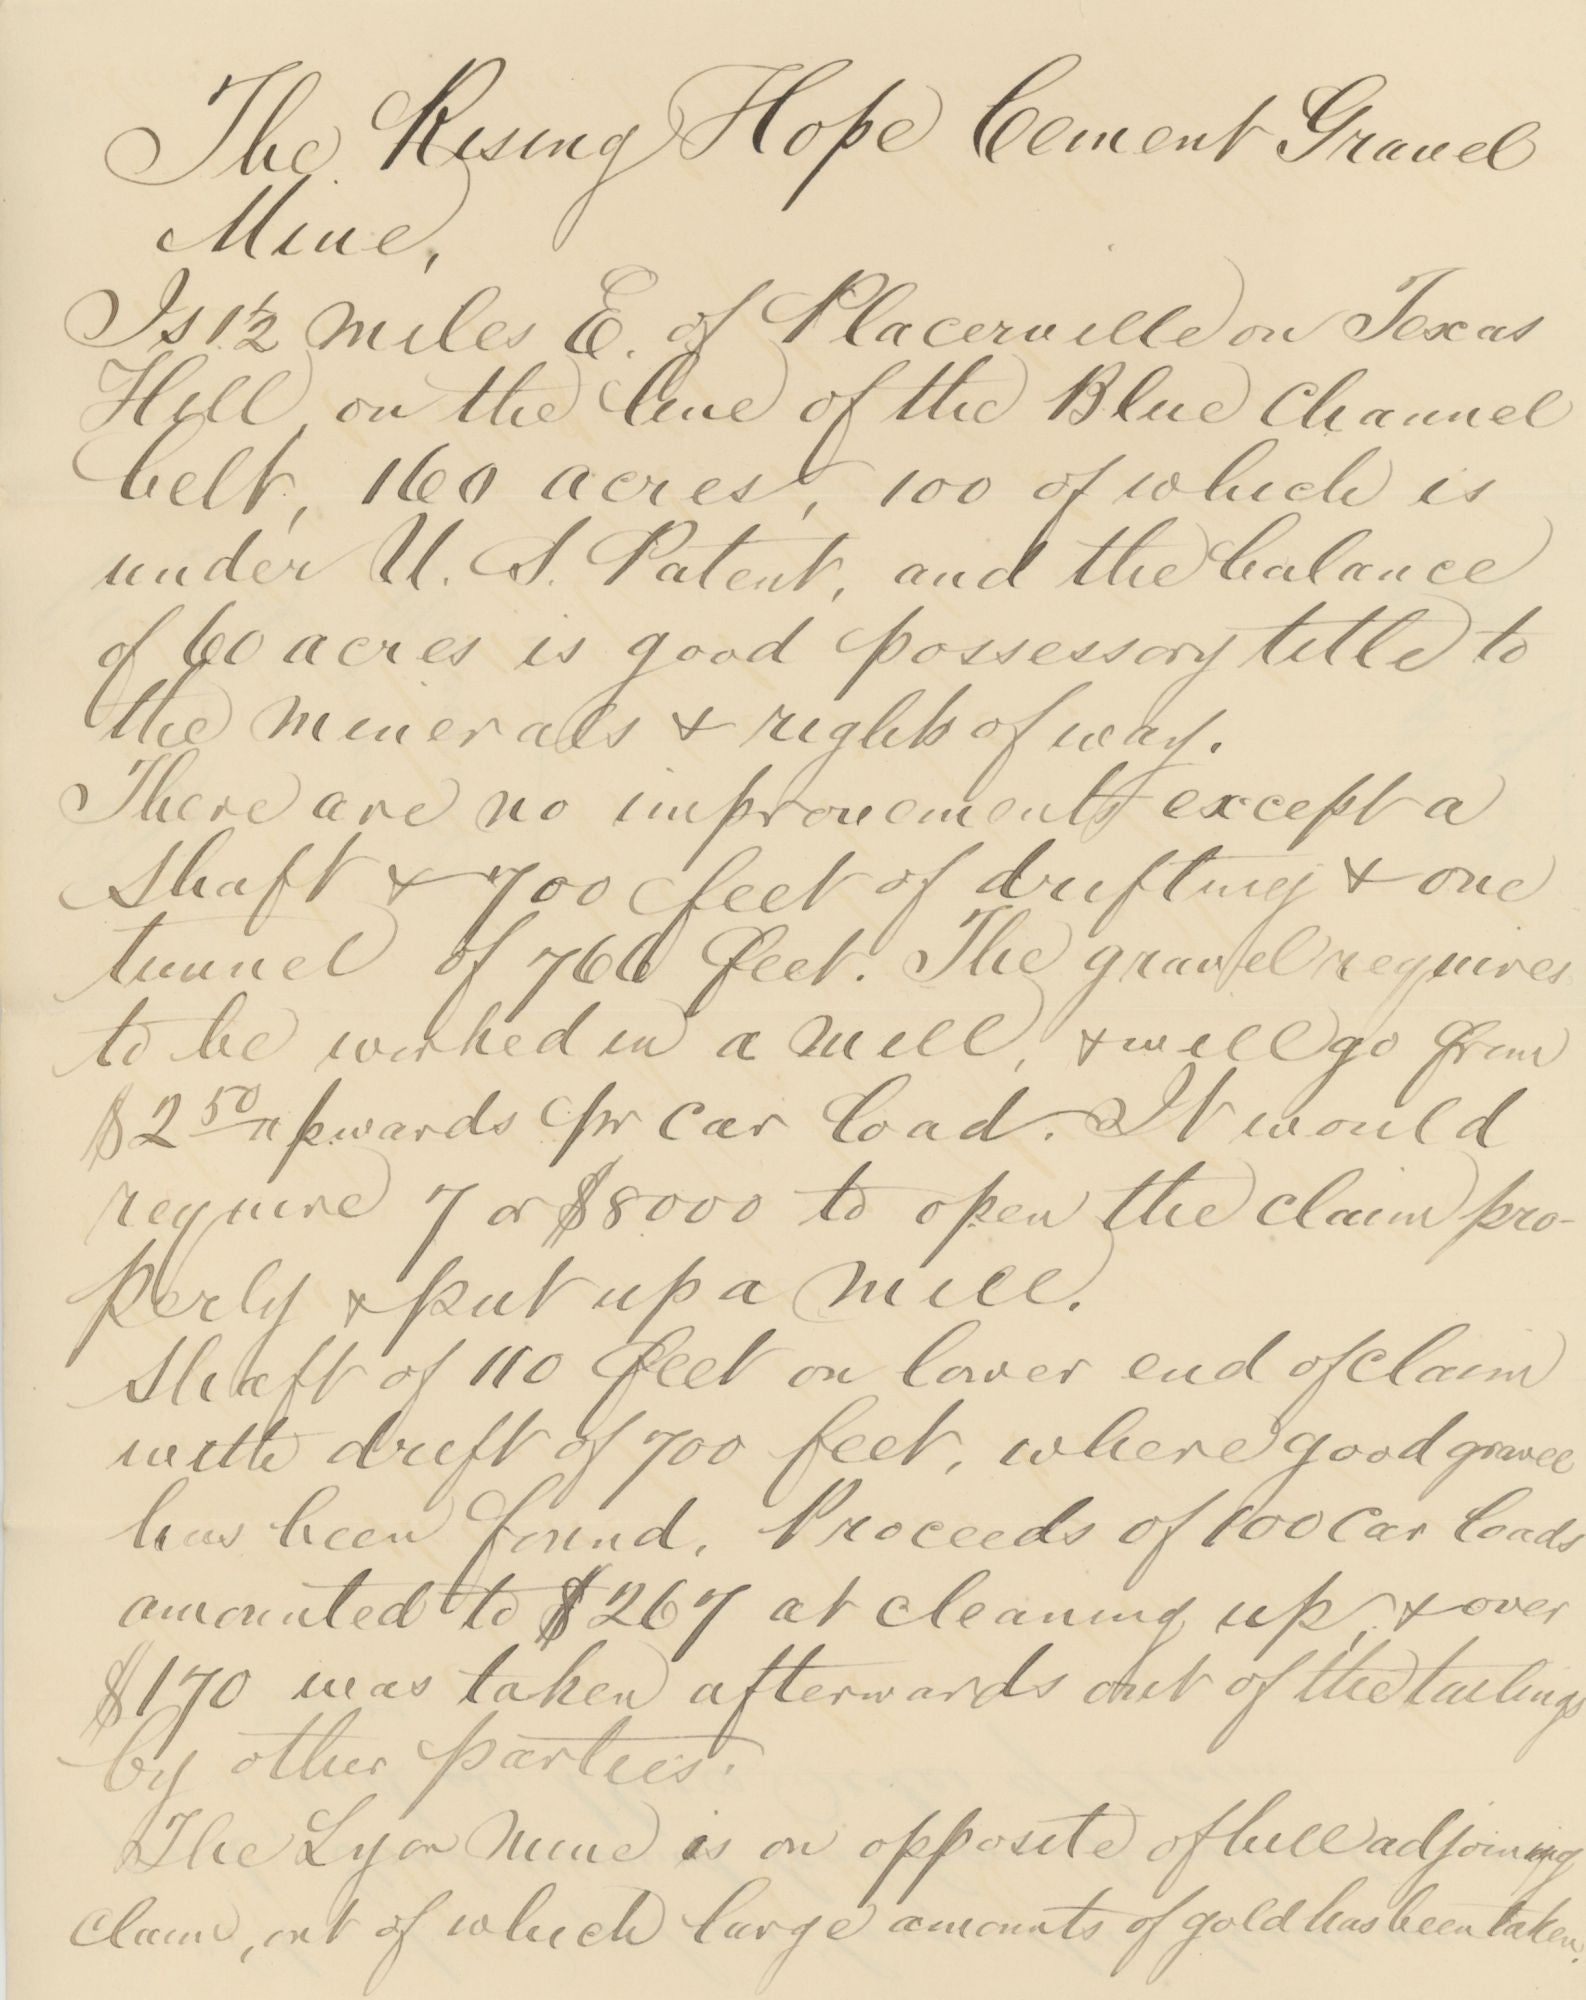 The Rising Hope Cement Gravel
Mine,
Is 1½ miles E. of Placerville on Texas
Hill, on the line of the Blue Channel
belt, 160 acres, 100 of which is
under U. S. Patent, and the balance
of 60 acres is good possessory title to
the minerals & rights of way.
There are no improvements except a
Shaft & 700 feet of drifting & one
tunnel of 766 feet. The gravel requires
to be worked in a mill, & will go from
$2 50 upwards pr car load. It would
require 7 or $8000 to open the claim pro-
perly & put up a mill.
Shaft of 110 feet on lower end of claim
with drift of 700 feet, where good gravel
has been found. Proceeds of 100 car loads
amounted to $267 at cleaning up, & over
$170 was taken afterwards out of the tailings
by other parties.
The Lyon Mine is on opposite of hill adjoining
claim, out of which large amounts of gold has been taken.